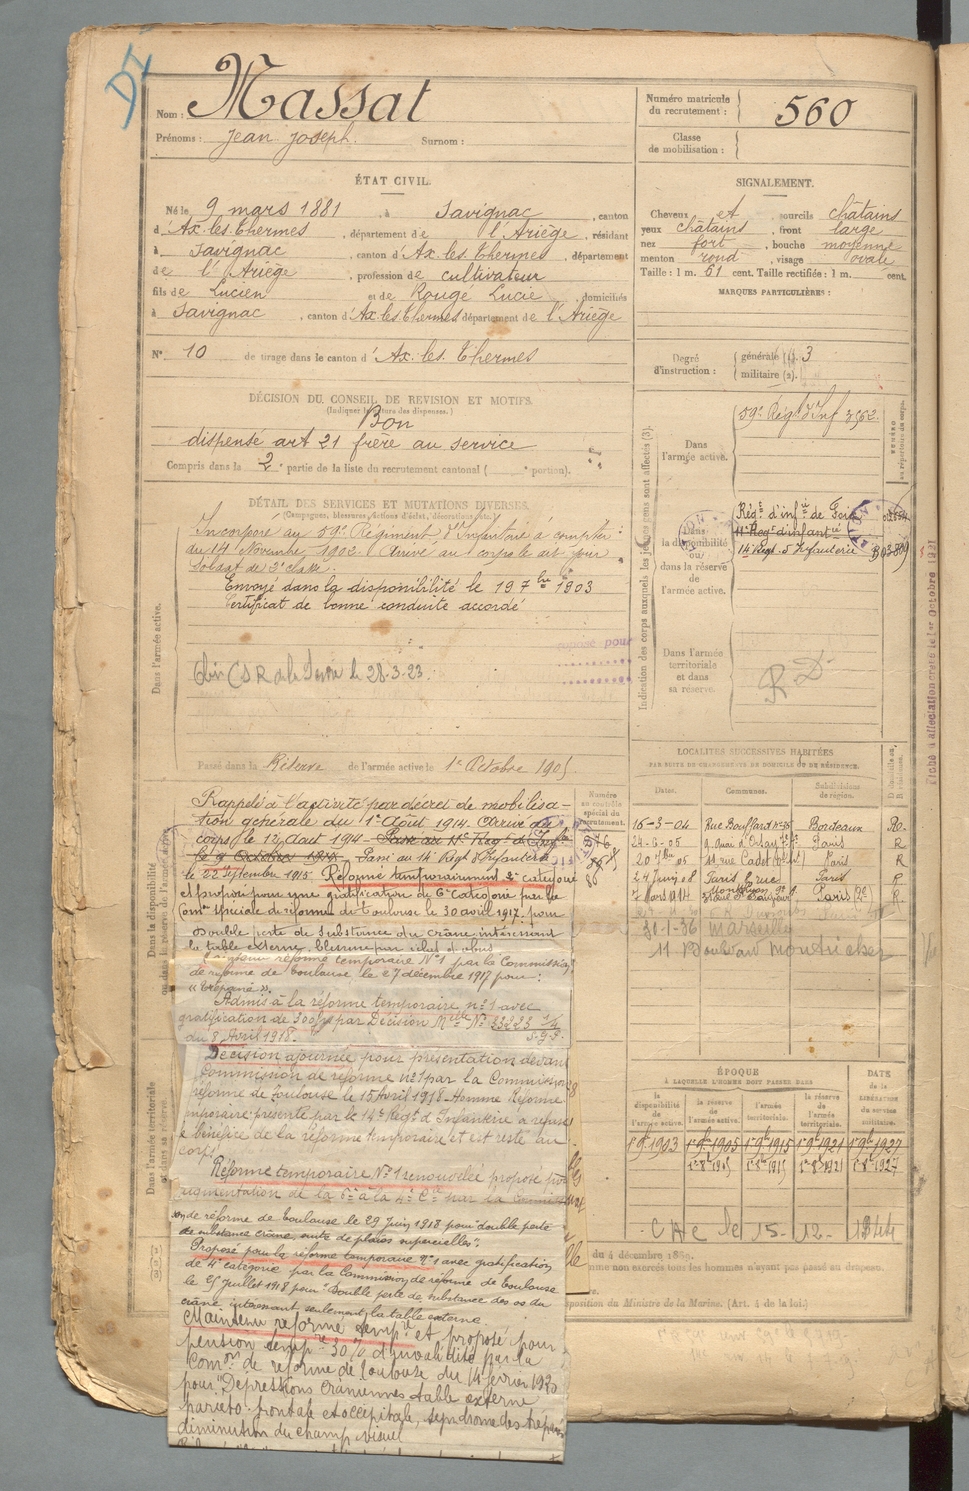 DI
Nom : Massat
Prénoms : Jean Joseph. Surnom :
Numéro matricule du recrutement : 560
Classe de mobilisation :
ÉTAT CIVIL.
Né le 9 mars 1881, à Savignac, canton
d'Ax-les-Thermes, département de l'Ariège, résidant
à Savignac, canton d'Ax les Thermes, département
de l'Ariège, profession de cultivateur
fils de Lucien et de Rougé Lucie, domiciliés
à Savignac, canton d'Ax-les-Thermes département de l'Ariège
N° 10 de tirage dans le canton d'Ax-les-Thermes
SIGNALEMENT.
Cheveux et, sourcils châtains
yeux châtains, front large
nez fort, bouche moyenne
menton rond, visage ovale
Taille : 1 m. 61 cent. Taille rectifiée : 1 m. cent.
MARQUES PARTICULIÈRES :
Degré d'instruction : générale (1). 3
militaire (2).
DÉCISION DU CONSEIL DE REVISION ET MOTIFS.
Bon
dispensé art 21 frère au service
Compris dans la 2e partie de la liste du recrutement cantonal ( e portion).
DÉTAIL DES SERVICES ET MUTATIONS DIVERSES.
(Campagnes, blessures, actions d'éclat, décorations, etc.)
Incorporé au 59e Régiment d'Infanterie à compter
du 14 Novembre 1902. Arrivé au corps le dit jour
Soldat de 2e classe.
Envoyé dans la disponibilité le 19 7bre 1903
Certificat de bonne conduite accordé
CSR de la Seine le 28-3-23.
Passé dans la Réserve de l'armée active le 1er Octobre 1905
Dans l'armée active.
Indication des corps auxquels les jeunes gens sont affectés (3).
Dans l'armée active.
59e Régt d'Inf 3562.
Dans la disponibilité ou dans la réserve de l'armée active.
Régt d'infie de Foix
14 Régt d'Infanterie
Dans l'armée territoriale et dans sa réserve.
R.D.
Rappelé à l'activité par décret de mobilisa-
tion générale du 1er Août 1914. Arrivé au
corps le 12 Août 1914
le 9 Octobre Passé au 14e Régt d'Infanterie
le 22 Septembre 1915 Réformé temporairement 2e catégorie
et proposé pour une gratification de 6e Catégorie par la
Com. spéciale de réforme de Toulouse le 30 avril 1917. pour
Double perte de Substance du crâne intéressant
la table externe, blessure par éclat d'obus
réforme temporaire N°1 par la Commission
de réforme de Toulouse, le 27 décembre 1917 pour :
"Trépané".
Admis à la réforme temporaire n°1 avec
gratification de 300f par Décision Mlle N° 33223
du 8 Avril 1918.
Décision ajournée pour présentation devant
Commission de réforme n°1 par la Commission
réforme de Toulouse le 15 Avril 1918. Homme Réforme
temporaire présenté par le 14e Régt d'Infanterie a refusé
le bénéfice de la réforme temporaire et est resté au
corps
Réforme temporaire N°1 renouvelée proposé pour
augmentation de la 6e à la 4e Cie par la Commis
sion de réforme de Toulouse le 29 Juin 1918 pour double perte
de substance crâne, suite de plaies superficielles".
Proposé pour la réforme temporaire n°1 avec gratification
de 4e catégorie par la Commission de réforme de Toulouse
le 25 juillet 1918 pour "Double perte de substance des os du
crâne intéressant seulement la table externe.
Maintenu réformé tempre et proposé pour
pension tempre 30% d'invalidité par la
Comon de réforme de Toulouse du 14 février 1920
pour "Dépressions crâniennes table externe
pariéto-frontale et occipitale, syndrome des trépanés
diminution du champ visuel
Numéro au contrôle spécial du recrutement.
LOCALITÉS SUCCESSIVES HABITÉES
PAR SUITE DE CHANGEMENTS DE DOMICILE OU DE RÉSIDENCE.
Dates. Communes. Subdivisions de région.
16-3-04 Rue Bouffard n°35 Bordeaux
24-6-05 9 quai d'Orsay Paris R
20 7bre 05 11 rue Cadet Paris R
24 Juin 08 Paris Paris R
7 Mars 1914 Paris (2e) R
30-1-36 Marseille
11 Boulevard Montricher
ÉPOQUE
À LAQUELLE L'HOMME DOIT PASSER DANS
la disponibilité de l'armée active.
la réserve de l'armée active.
l'armée territoriale.
la réserve de l'armée territoriale.
DATE de la LIBÉRATION du service militaire.
1 9bre 1903 1 9bre 1905 1 9b 1915 1 9b 1921 1 9b 1927
1er 8b 1905 1er 8b 1915 1er 8b 1921 1er 8b 1927
C A C le 15-12-
du 4 décembre 1889.
mme non exercés tous les hommes n'ayant pas passé au drapeau.
sposition du Ministre de la Marine. (Art. 4 de la loi.)